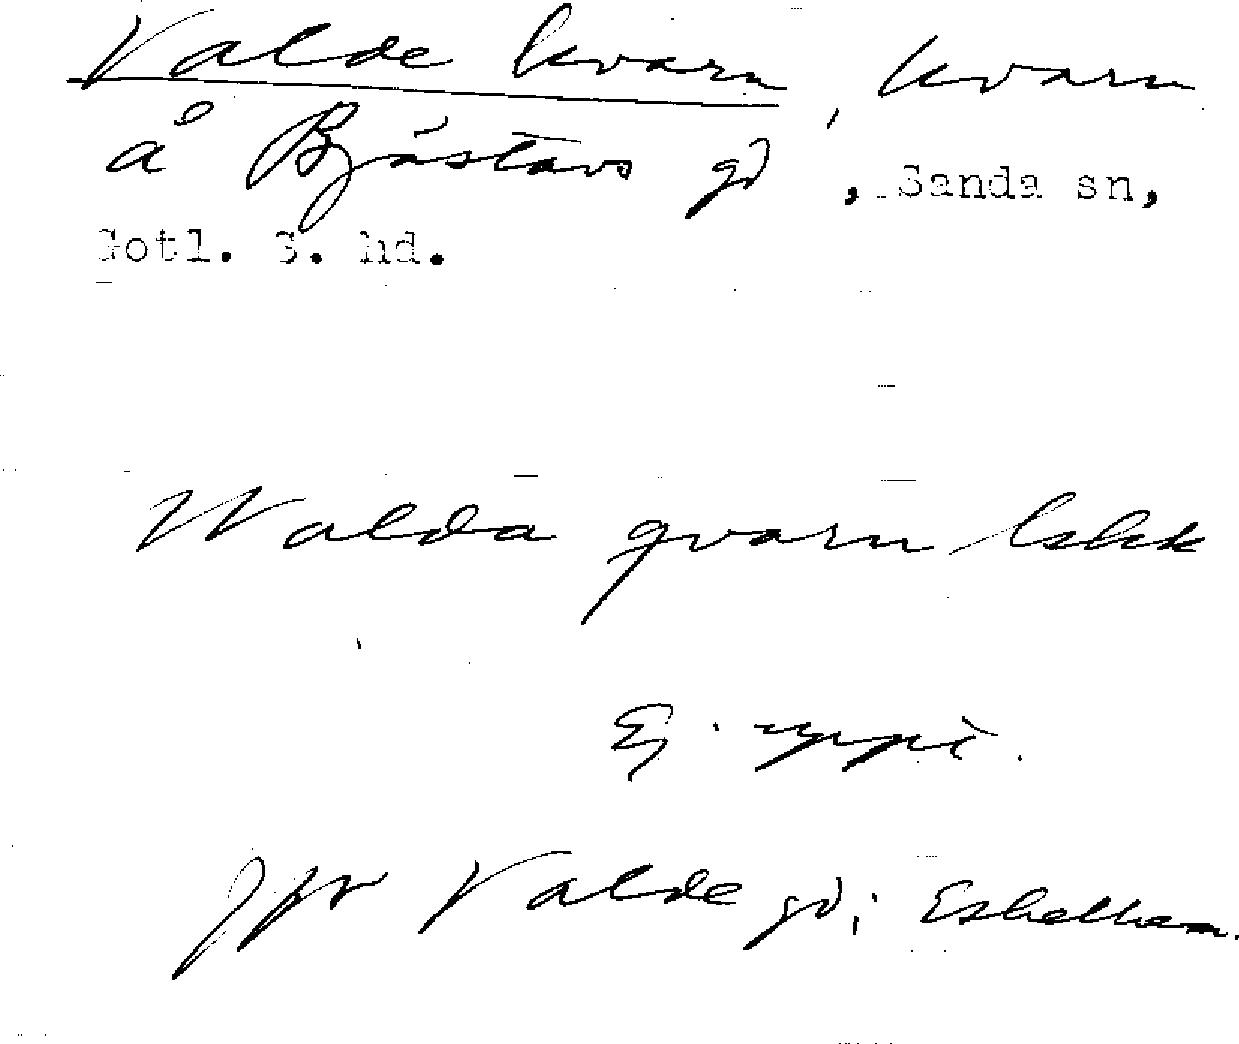 Valde kvarn, kvarn
å Bjästavs gd, Sanda sn,
Gotl. S. hd.
Walda qvarn
Ej uppt.
Jfr Valde gd i Eskelhem.